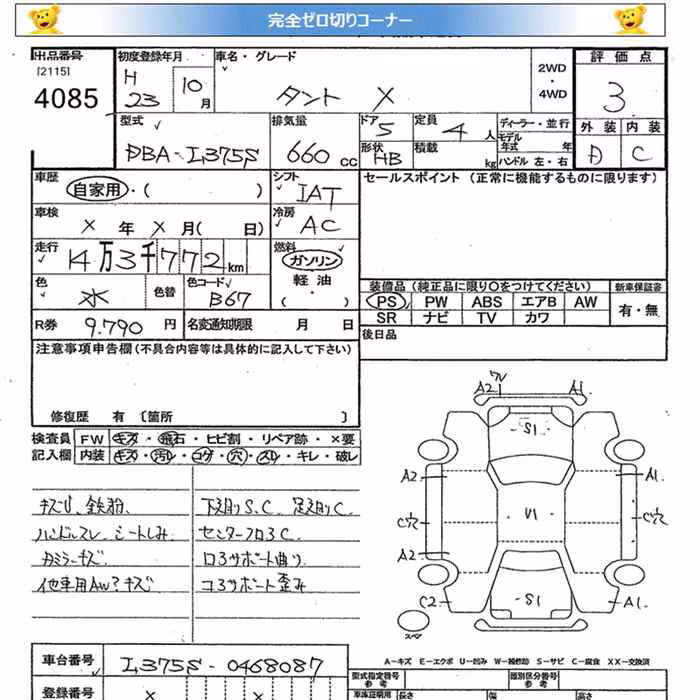 完全ゼロ切りコーナー
出品番号 初度登録年月 車名・グレード 評価点
[2115] H 2WD
4085 23 10月 タント X ・4WD 3
型式 排気量 ドア 定員 ディーラー・並行 外装 内装
DBA-L375S 660 CC 5 4人 モデル年式 年 D C
形状 HB 積載 kg ハンドル 左・右
車歴 シフト セールスポイント (正常に機能するものに限ります)
自家用・( ) IAT
車検 X 年 X 月( 日) 冷房 AC
走行 14万3千772km 燃料 ガソリン
軽油
・( )
色 水 色替 色コード B67
装備品 (純正品に限り○をつけてください) 新車保証書
PS PW ABS エアB AW 有・無
SR ナビ TV カワ
R券 9.790 円 名変通知期限 月 日 後日品
注意事項申告欄(不具合内容等は具体的に記入して下さい)
修復歴 有 〔箇所 〕
検査員 FW キズ・飛石・ヒビ割・リペア跡・×要
記入欄 内装 キズ・汚れ・コゲ・穴・スレ・キレ・破レ
キズU、鉄粉、 下廻りS.C 足廻りC
ハンドルスレ、シートしみ センターフロアC
カミラーキズ ロアサポート曲り
他車用AW?キズ コアサポート歪み
ワレ
A2 A1
S1
A2 A1
C穴 U1 C穴
A2
C2 S1 A1
スペア
A-キズ E-エクボ U-凹み W-補修跡 S-サビ C-腐食 XX-交換済
車台番号 L375S-0468087
型式指定番号 参考 類別区分番号 参考
登録番号 X X 車庫証明用 長さ 幅 高さ